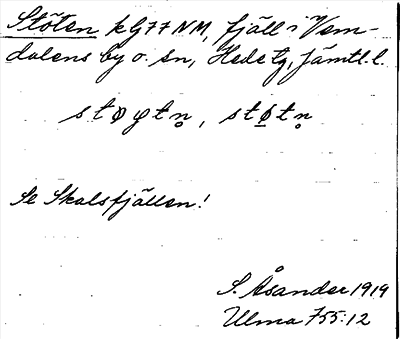 Stöten kG77NM, fjäll i Vem-
dalens by o. sn, Hede tg, Jämtl. l.
støytn̥, støtn̥
Se Skalsfjällen!
S. Åsander 1919
Ulma 755:12